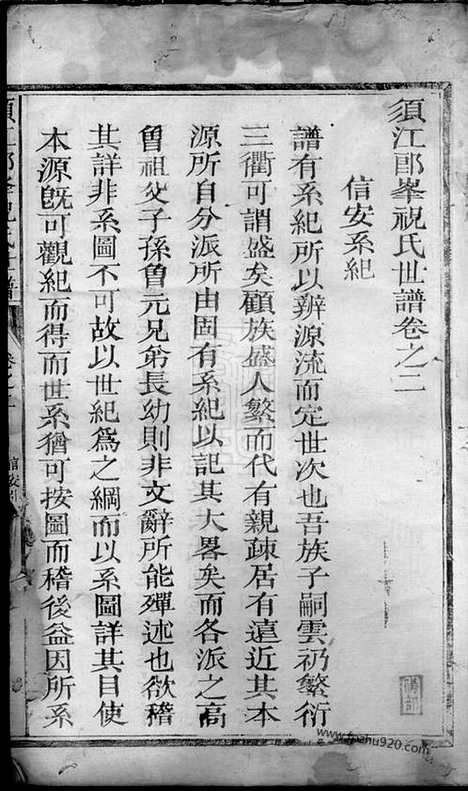 須江郎峯祝氏世譜卷之二
信安系紀
譜有系紀所以辨源流而定世次也吾族子嗣雲礽繁衍
三衢可謂盛矣顧族盛人繁而代有親疎居有遠近其本
源所自分派所由固有系紀以記其大畧矣而各派之高
曾祖父子孫曾元兄弟長幼則非文辭所能殫述也欲稽
其詳非系圖不可故以世紀爲之綱而以系圖詳其目使
本源旣可觀紀而得而世系猶可按圖而稽後益因所系
須江郎峯祝氏世譜
卷之二
www.jiapu920.com